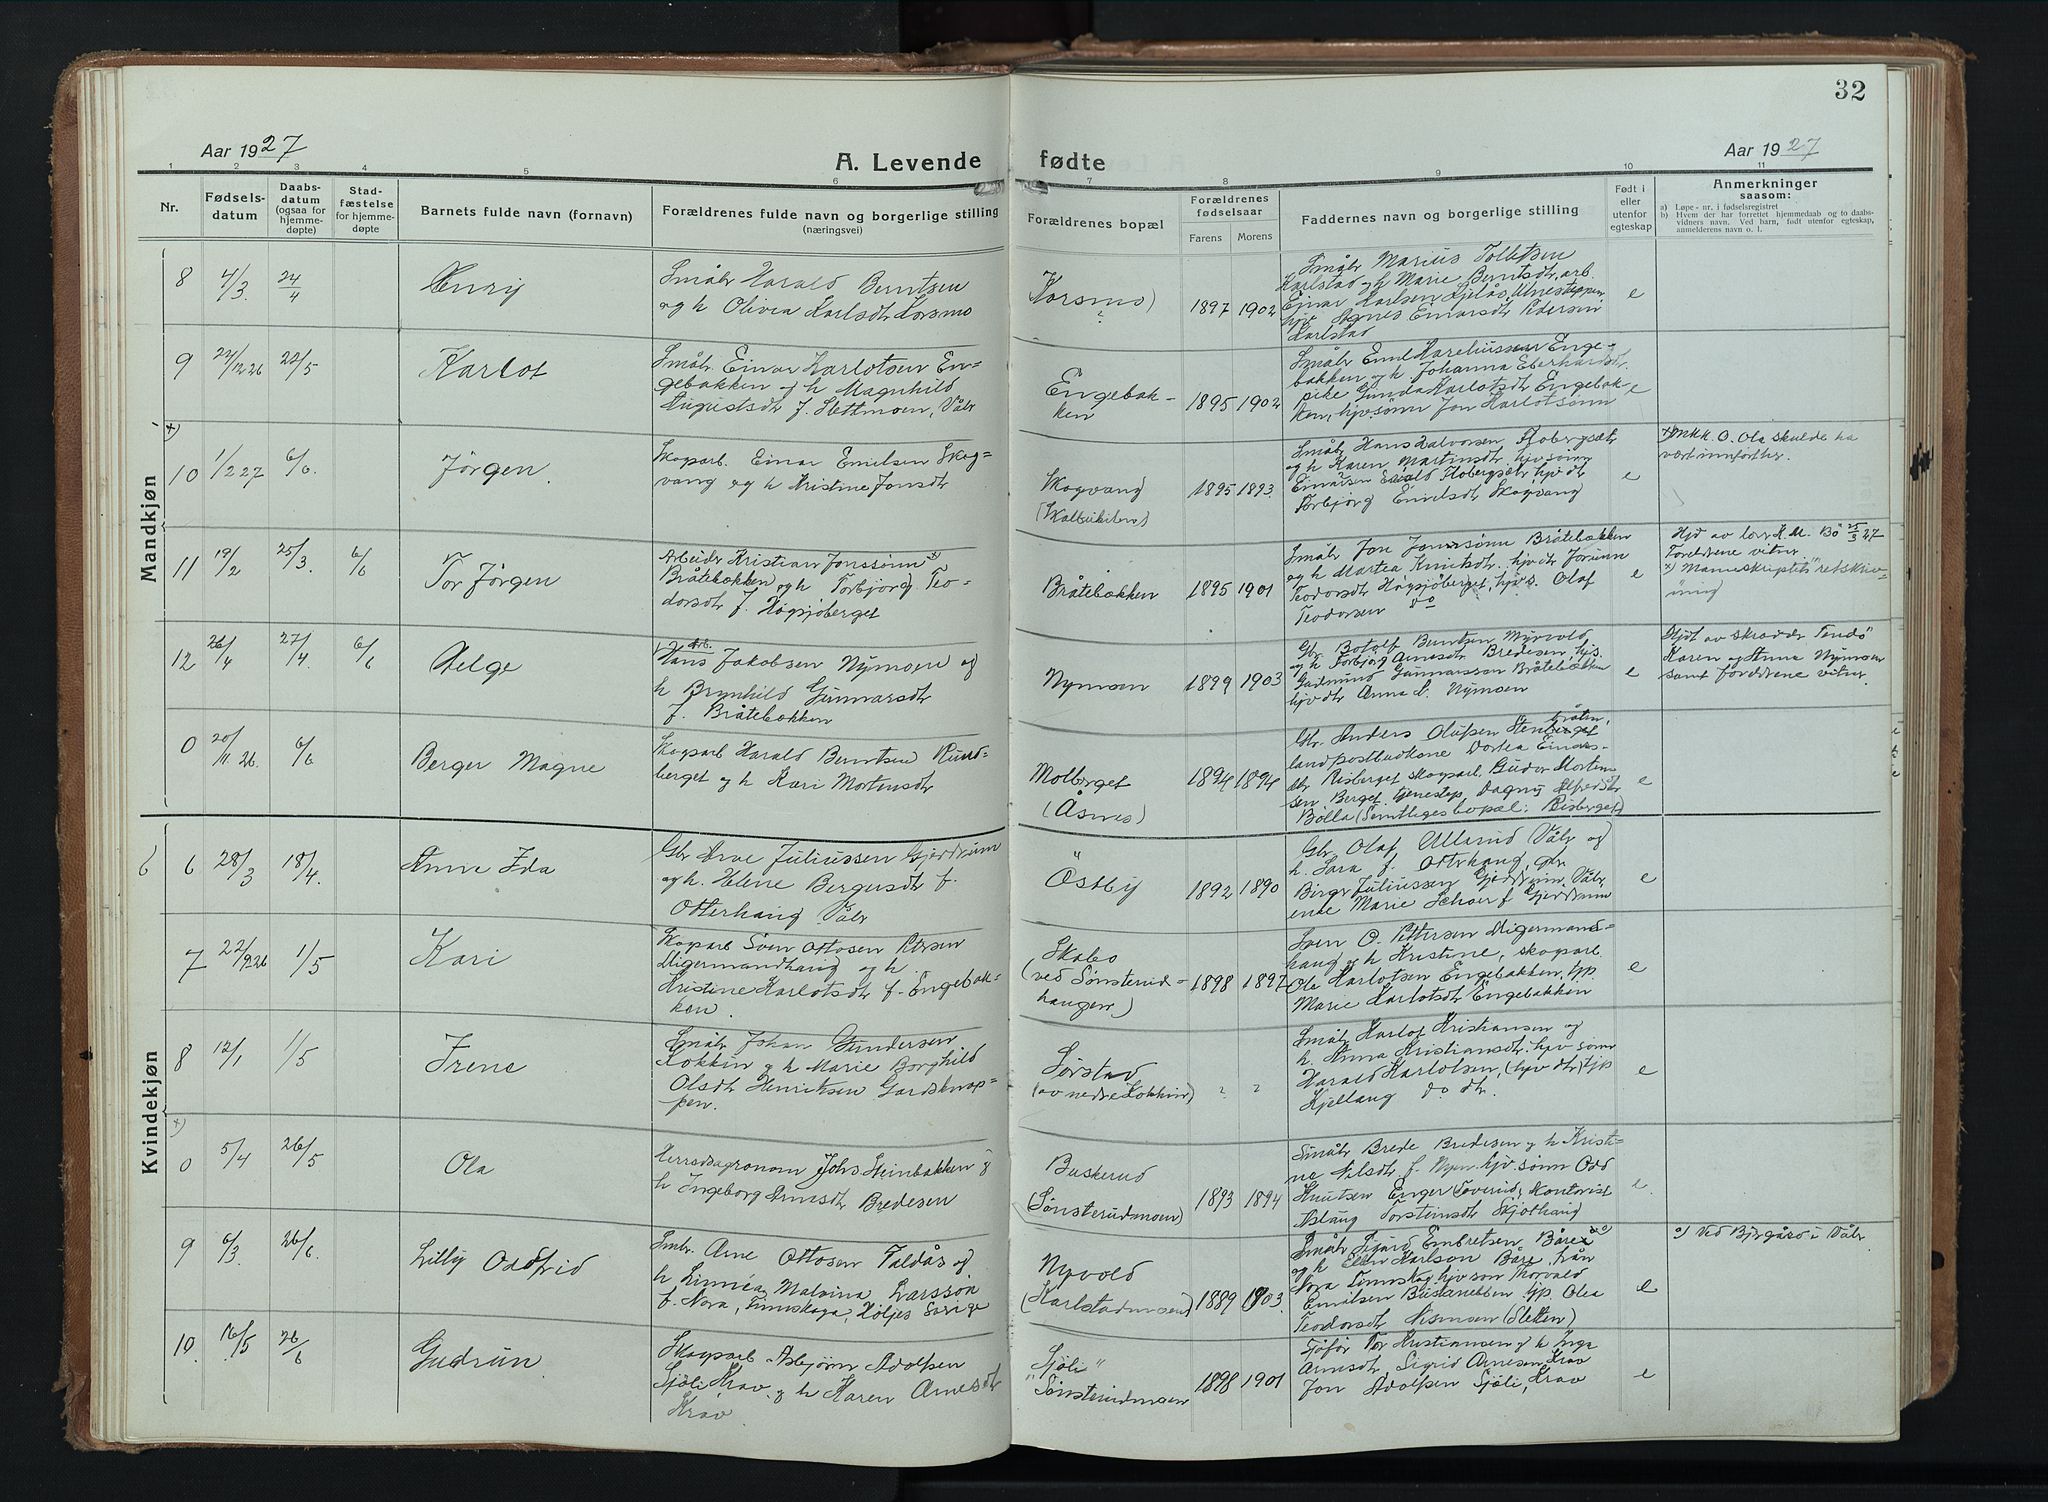 32
Aar 1927
A. Levende fødte
Aar 1927
1 2 3 4 5 6 7 8 9 10 11
Nr.
Fødsels-
datum
Daabs-
datum
(ogsaa for
hjemme-
døpte)
Stad-
fæstelse
for hjemme-
døpte
Barnets fulde navn (fornavn)
Forældrenes fulde navn og borgerlige stilling
(næringsvei)
Forældrenes bopæl
Forældrenes
fødselsaar
Farens Morens
Faddernes navn og borgerlige stilling
Født i
eller
utenfor
egteskap
Anmerkninger
saasom:
a) Løpe-nr. i fødselsregistret
b) Hvem der har forrettet hjemmedaab og to daabs-
vidners navn. Ved barn, født utenfor egteskap,
anmelderens navn o. l.
Mandkjøn
8 4/3 24/4
Henry
Småbr Harald Berntsen
og h Olivia Karlsdtr Korsmo
Korsmo
1897 1902
Småbr Marius Tollefsen
Karlstad og h Marie Berntsdtr, arb.
Einar Karlsen
hjv Agnes Einarsdtr
Karlstad
e
9 24/12 26 22/5
Karlot
Småbr Einar Karlotsen En-
gebakken og h Magnhild
Augustsdtr f. Slettmoen, Våler
Engebak-
ken
1895 1902
Småbr Emil Kareliussen Enge-
bakken og h. Johanna Eberhardsdtr.
pike Gunda Karlotsdtr Engebak-
ken, hjv sønn Jon Karlotsønn
e
x)
10 1/2 27 6/6.
Jörgen.
Skogarb. Einar Emilsen Skog-
vang og h Kristine Jonsdtr
Skogvang
1895 1893
Småbr Hans Halvorsen, Flobergsæt
og h Karen Martinsdtr, hjv sönn
Einarsen Flobergsætr, hjv dtr
Torbjörg Emilsdtr Skogvang
e
x) NKK. O. Ola skulde ha
vært innført her.
11 19/2 25/3. 6/6
Tor Jörgen
Arbeider Kristian Jonssönn x)
Bråtebækken og h Torbjørg Teo-
dorsdtr f. Högsjöberget
Bråtebækken
1895 1901
Småbr Jon Jonssönn Bråtebækken
og h Martea Knutsdtr. hjv dtr Jorunn
Teodorsdtr Högsjöberget, hjv s. Olaf
Teodorsen do
e
Hjd av lærer K.M. Bö 25/3 27
Foreldrene vitner
x) Manuskriptets retskriv-
ning
12 26/4 27/4. 6/6
Helge
Arb.
Hans Jakobsen Nymoen og
h Brynhild Gunnarsdtr
f. Bråtebækken
Nymoen
1899 1903
Gbr Botolf Berntsen Myrvold
og h Torbjørg Arnesdtr Bredesen, hjv s.
Gudmund Gunnarssøn Bråtebækken
hjv dtr Anna J. Nymoen
e
Hjdt av skrædder Tendö
Karen og Anna Nymoen
samt foreldrene vitner.
0 20/11 26. 6/6
Berger Magne
Skogarb Harald Berntsen Rund-
berget og h Kari Mortensdtr
Molberget
(Åsnes)
1894 1894
Gbr. Anders Olufsen Stenbråten,
landpostbudkone Dortea Einars-
dtr Risberget skogarb. Guder Morten-
sen Berget, tjenestep. Dagny Alfredsdtr
Bolla (Samtliges bopæl: Risberget)
e
Kvindekjøn
6 6 28/3 18/4.
Anne Ida
Gbr Arve Juliussen Gjerdrum
og h. Helene Bergersdtr f.
Otterhaug Våler
Östby
1892 1890
Gbr. Olaf Ullerud (Våler og
h. Sara f. Otterhaug, gbr.
Birger Juliussen Gjerdrum, Våler,
enke Marie f Gjerdrum
e
7 22/9 26 1/5
Kari
Skogarb Sven Ottosen Petersen
Digermandhaug og h.
Kristine Karlotsdtr f. Engebak-
ken.
Skabo
(ved Sønsterud-
haugen)
1898 1897
Sven O. Pettersen Digermands-
haug og h Kristine, skogarb.
Ola Karlotsen Engebakken, tjp
Marie Karlotsdtr Engebakken
e
8 12/1 1/5
Irene
Småbr Johan Gundersen
Lokken og h Marie Borghild
Olsdtr Henriksen Gardsknap-
pen.
Sørstad
(av nedre Lokken)
? ?
Småbr Karlot Kristiansen og
h. Anna Kristiansdtr. hjv sønn
Harald Karlotsen, (hjv dtr) tjp
Kjellaug do dtr.
e
x)
0 5/4 26/5
Ola
Herredsagronom Johs Steinbakken og
h Ingeborg Arnesdtr Bredesen
Buskerud
(Sønsterudmoen)
1893 1894
Småbr Brede Bredesen og h Kristi-
ne Nilsdtr f. Nymo. hjv. sønn Odd
Knutsen Enger Soverud, Kontorist
Aslaug Torsteinsdtr Skjølhaug
e
9 6/3. 26/6.
Lilly Oddfrid
Småbr. Arne Ottosen Faldås og
h. Linnéa Malvina Larsson
f. Nora, Finnskoga, Höljes Sverige
Nyvold
(Karlstadmoen)
1889 1903.
Småbr Sigurd Embretsen Båre o)
og h Ellen Karlson Båre, från
Nora Finnskog, hjv sønn Thorvald
Emilsen tjp. Ola
Teodorsdtr Nesmoen (Sletten)
e
o) Ved Bjrgåsø i Våler
10. 16/5 26/6
Gudrun
Skogarb Asbjørn Adolfsen
Sjöli, Krav, og h Karen Arnesdtr
Krav.
"Sjöli"
Sønsterudmoen
1898 1901
Sjåfør Tor Kristiansen og h Inga
Arnesdtr, Sigrid Arnesen Krav
Jon Adolfsen Sjöli, Krav
e